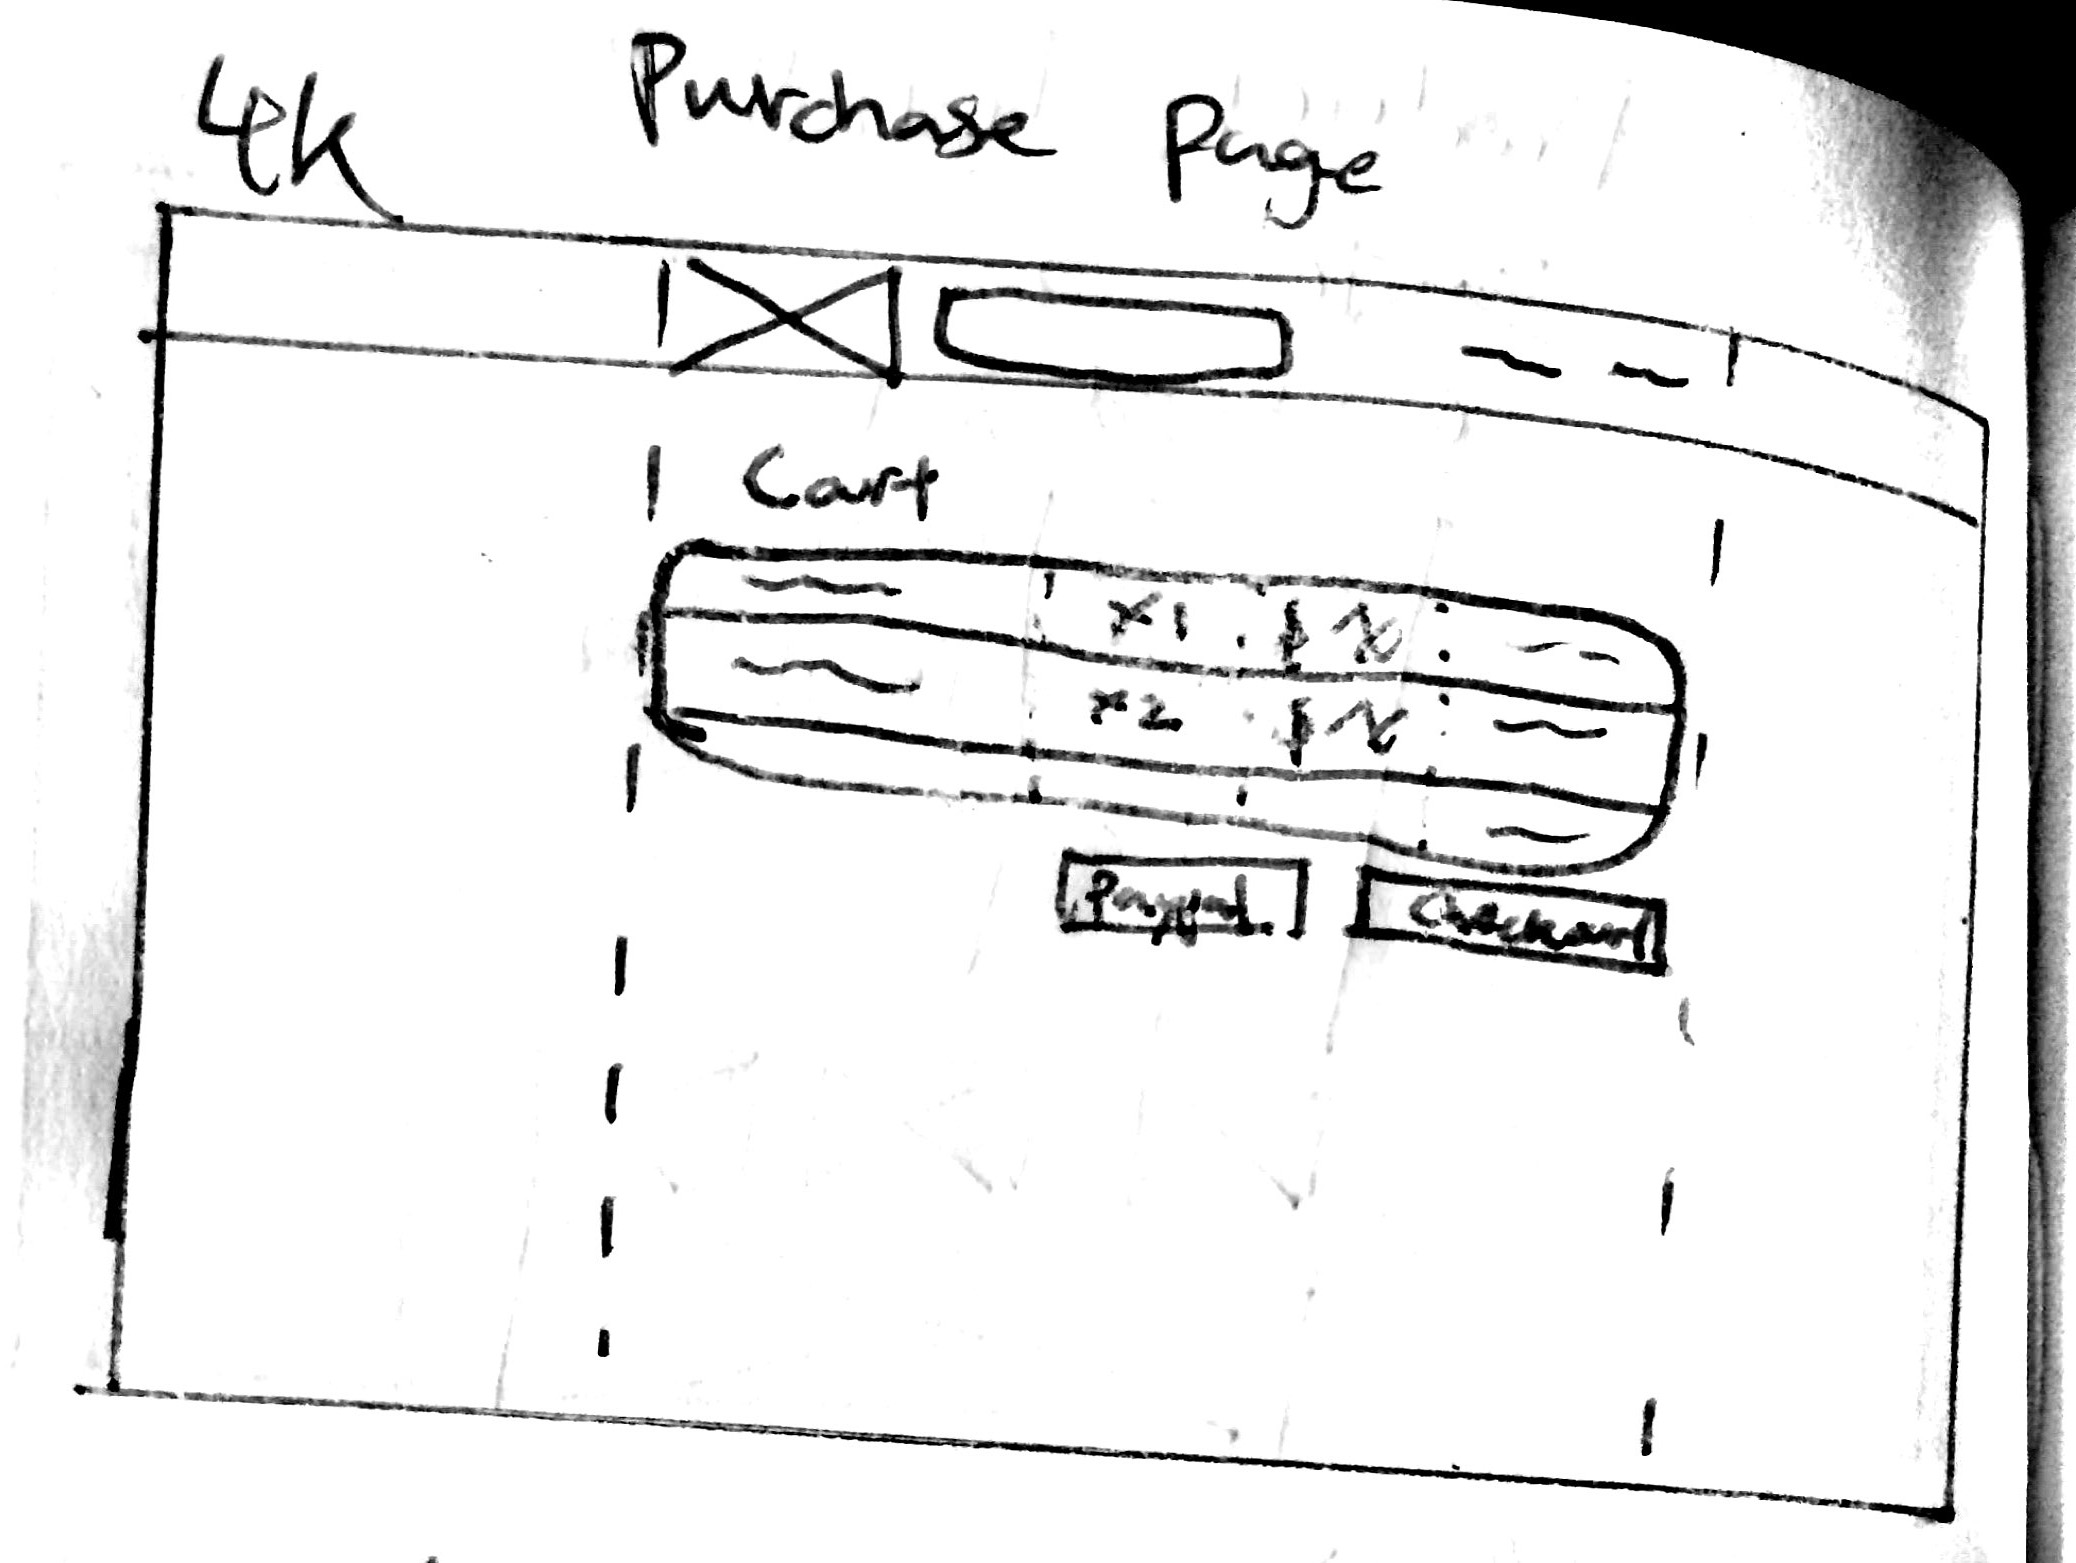 4k
Purchase Page
Cart
x1 $
x2 $
Paypal
Checkout